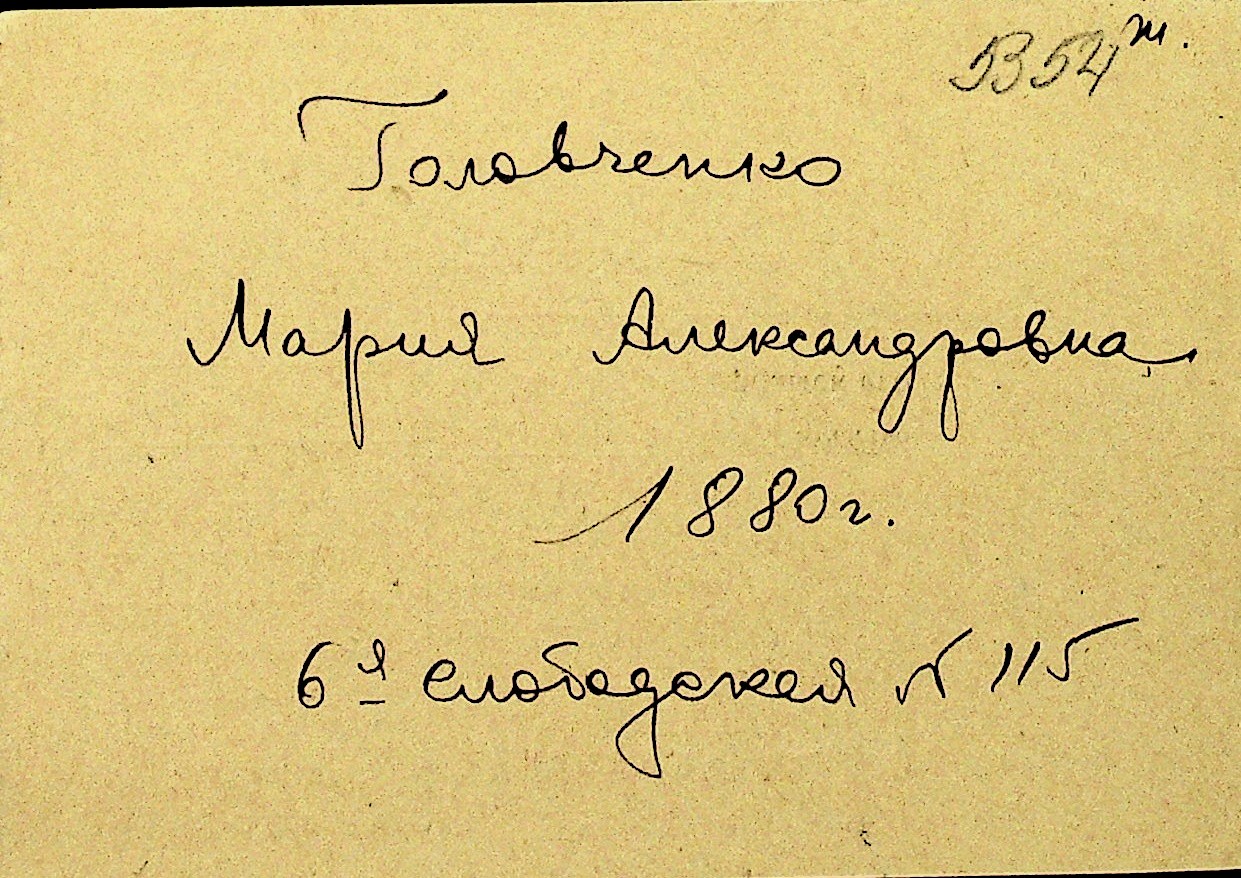 5354 т.
Головченко
Мария Александровна
1880г.
6я слободская № 115